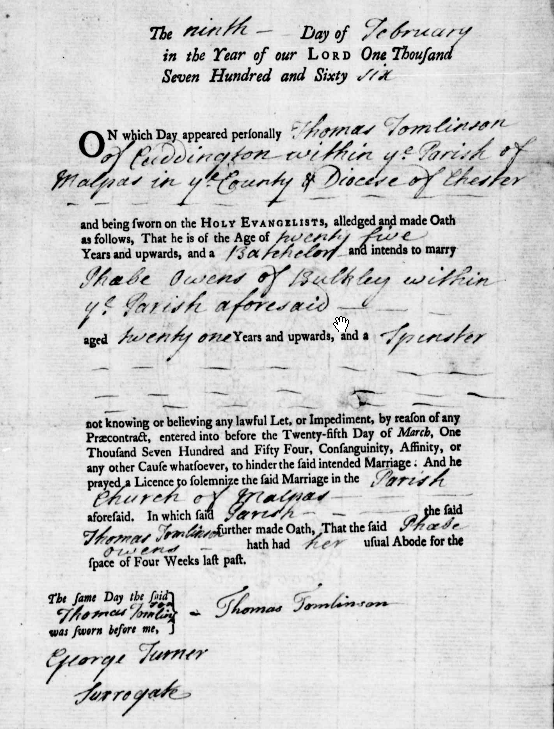 The ninth — Day of February
in the Year of our LORD One Thouſand
Seven Hundred and Sixty six
ON which Day appeared perſonally Thomas Tomlinson
of Cuddington within ye Parish of
Malpas in ye County & Diocese of Chester
and being ſworn on the HOLY EVANGELISTS, alledged and made Oath
as follows, That he is of the Age of twenty five
Years and upwards, and a Batchelor and intends to marry
Phabe Owens of Bulkley within
ye Parish aforesaid
aged twenty one Years and upwards, and a Spinster
not knowing or believing any lawful Let, or Impediment, by reaſon of any
Præcontract, entered into before the Twenty-fifth Day of March, One
Thouſand Seven Hundred and Fifty Four, Conſanguinity, Affinity, or
any other Cauſe whatſoever, to hinder the ſaid intended Marriage: And he
prayed a Licence to ſolemnize the ſaid Marriage in the Parish
Church of Malpas
aforeſaid. In which ſaid Parish the ſaid
Thomas Tomlinson further made Oath, That the ſaid Phabe
Owens hath had her uſual Abode for the
ſpace of Four Weeks laſt paſt.
The ſame Day the ſaid
Thomas Tomlinson
was ſworn before me,
Thomas Tomlinson
George Turner
Surrogate